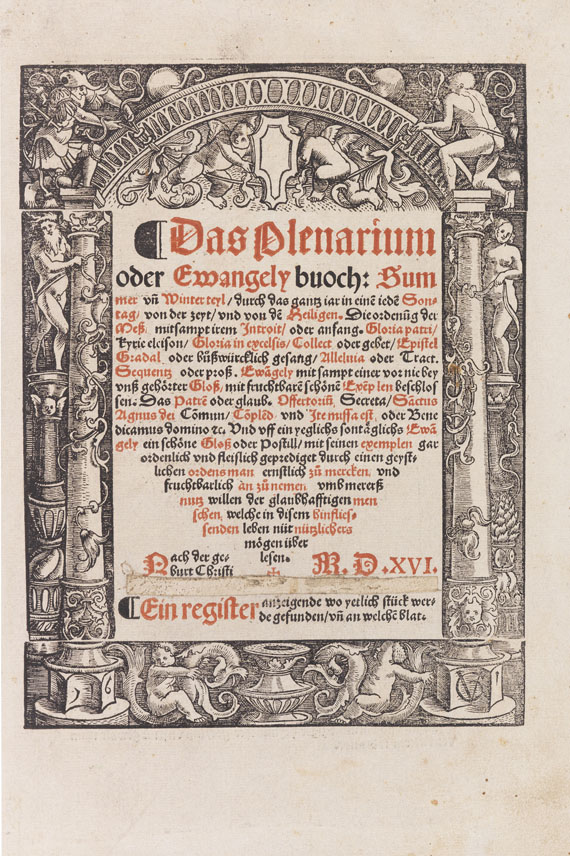 ¶ Das Plenarium
oder Ewangely buoch: Sum
mer vñ Winter teyl/ durch das gantz iar in einē iedē Son-
tag/ von der zeyt/ vnd von dē Heiligen. Die ordenūg der
Meß. mitsampt irem Introit/ oder anfang. Gloria patri/
Kyrie eleison/ Gloria in excelsis/ Collect oder gebet/ Epistel
Gradal oder bůßwürcklich gesang/ Alleluia oder Tract.
Sequentz oder proß. Ewāgely mit sampt einer vor nie bey
vnß gehörter Gloß/ mit fruchtbarē schönē Exēplen beschlos
sen. Das Patrē oder glaub. Offertoriū, Secreta/ Sāctus
Agnus dei Cōmun/ Cōplēd vnd Ite missa est, oder Bene
dicamus domino ꝛc. Vnd vff ein yeglichs sontāglichs Ewā
gely ein schöne Gloß oder Postill/ mit seinen exemplen gar
ordenlich vnd fleislich geprediget durch einen geyst-
lichen ordensman ernstlich zů mercken, vnd
fruchtbarlich an zů nemen vmb mererß
nutz willen der glaubhafftigen men
schen, welche in disem hinflies-
senden leben nüt nützlichers
mögen über
lesen.
Nach der ge-
burt Christi M. D. XVI.
¶ Ein register anzeigende wo yetlich stück wer-
de gefunden/ vñ an welchē blat.
VG